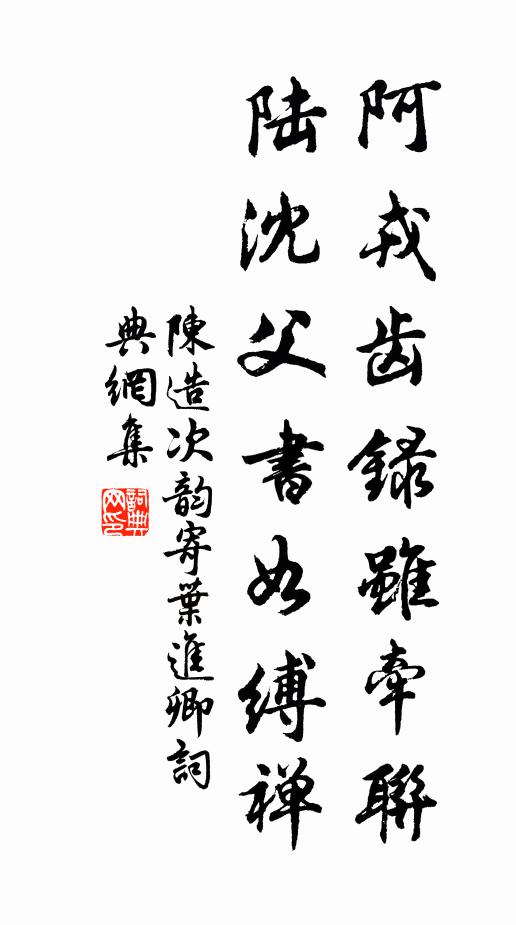 阿戎齿録雖牽聯
陆沈父書如縛禅
陳造次韵寄葉進卿詞
典網集
詞典网印